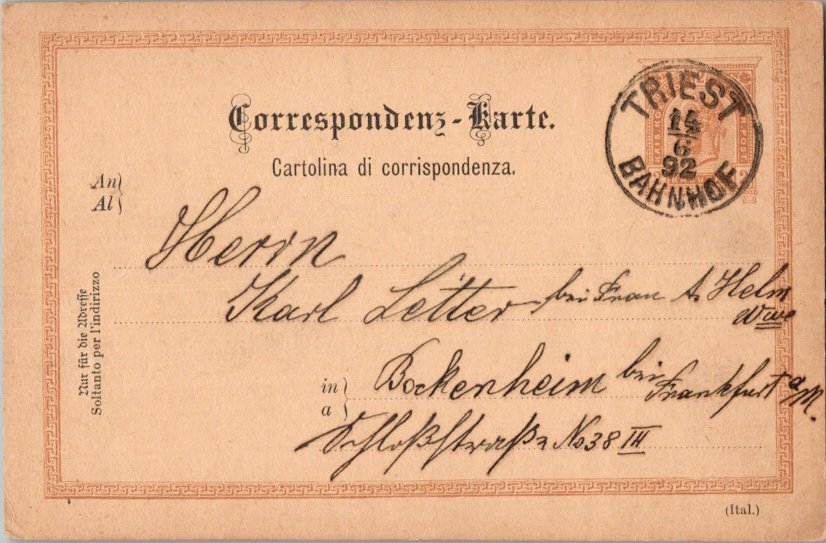 Correspondenz-Karte.
Cartolina di corrispondenza.
TRIEST
14
6
92
BAHNHOF
An
Al
Herrn
Karl Letter bei Frau A. Helm
Wwe
in
a
Bockenheim bei
Frankfurt a/M.
Schloßstraße No 38 III
Nur für die Adresse
Soltanto per l'indirizzo
(Ital.)